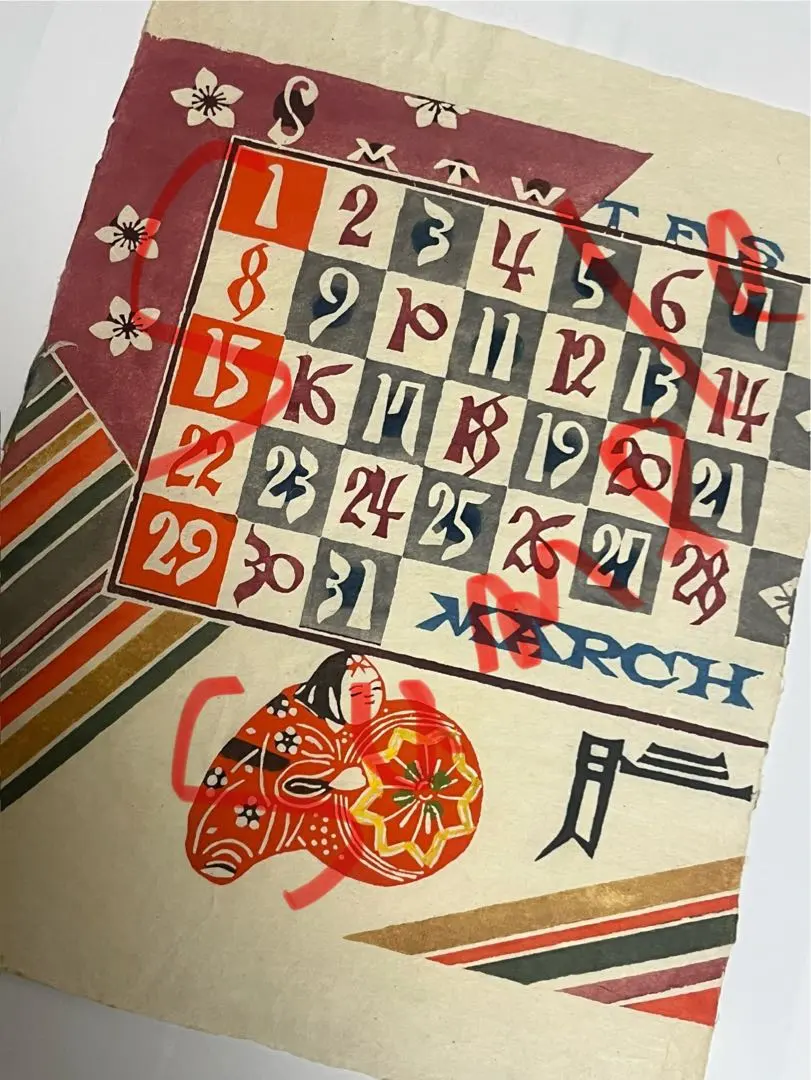 S M T W T F S
1 2 3 4 5 6 7
8 9 10 11 12 13 14
15 16 17 18 19 20 21
22 23 24 25 26 27 28
29 30 31
MARCH
三月